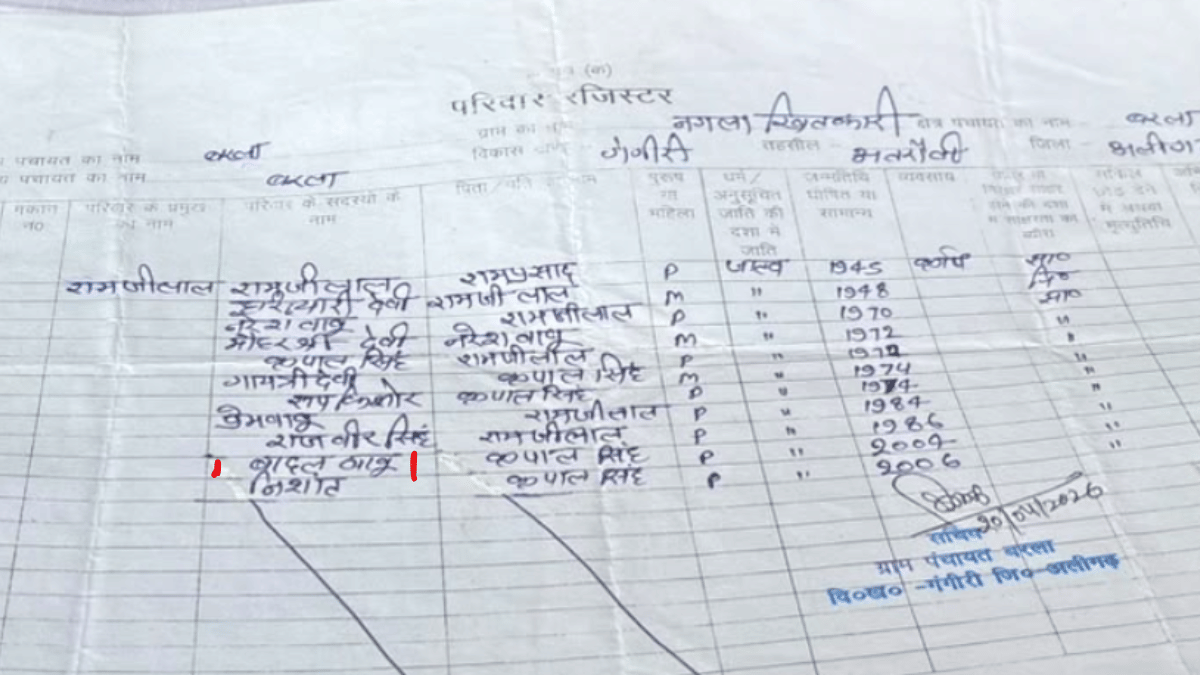 (क)
परिवार रजिस्टर
ग्राम का नाम नगला क्षेत्र पंचायत का नाम बरला
पंचायत का नाम बरला विकास खण्ड गंगीरी तहसील अतरौली जिला अलीग
पंचायत का नाम बरला
मकान न0 परिवार के प्रमुख का नाम परिवार के सदस्यों के नाम पिता/पति का नाम पुरुष या महिला धर्म/अनुसूचित जाति की दशा में जाति जन्मतिथि घोषित या सामान्य व्यवसाय
रामजीलाल रामजीलाल रामप्रसाद P 1945 सा०
देवी रामजी लाल M " 1948 नि०
नरेश बाबू रामजीलाल P " 1970 सा०
देवी नरेश बाबू M " 1972 "
कृपाल सिंह रामजीलाल P " "
गायत्री देवी कृपाल सिंह M " 1974 "
रूप किशोर कृपाल सिंह P " "
प्रेमबाबू रामजीलाल P " 1984 "
राजवीर सिंह रामजीलाल P " 1986 "
बादल बाबू कृपाल सिंह P "
निशांत कृपाल सिंह P " 2006
20/04/2026
सचिव
ग्राम पंचायत बरला
वि०ख० -गंगीरी जि०-अलीगढ़